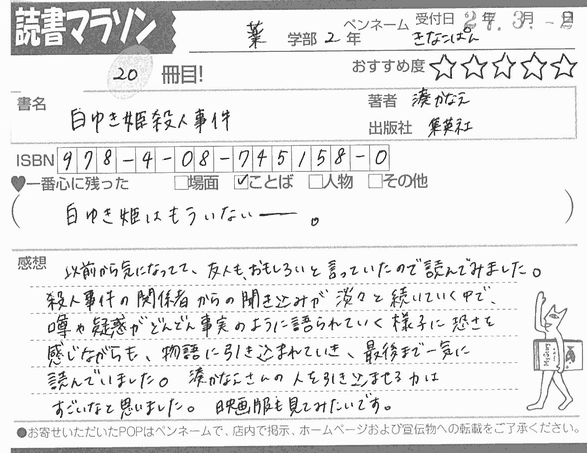 読書マラソン
薬 学部 2 年
ペンネーム きなこぱん
受付日 27年 3月 -2日
20 冊目!
おすすめ度 ☆☆☆☆☆
書名 白ゆき姫殺人事件
著者 湊かなえ
出版社 集英社
ISBN 978-4-08-745158-0
♥一番心に残った □場面 ☑ことば □人物 □その他
( 白ゆき姫はもういない──。 )
感想
以前から気になってて、友人もおもしろいと言っていたので読んでみました。
殺人事件の関係者からの聞き込みが淡々と続いていく中で、
噂や疑惑がどんどん事実のように語られていく様子に恐さを
感じながらも、物語に引き込まれていき、最後まで一気に
読んでいました。湊かなえさんの人を引き込ませる力は
すごいなと思いました。映画版も見てみたいです。
●お寄せいただいたPOPはペンネームで、店内で掲示、ホームページおよび宣伝物への転載をご了承ください。